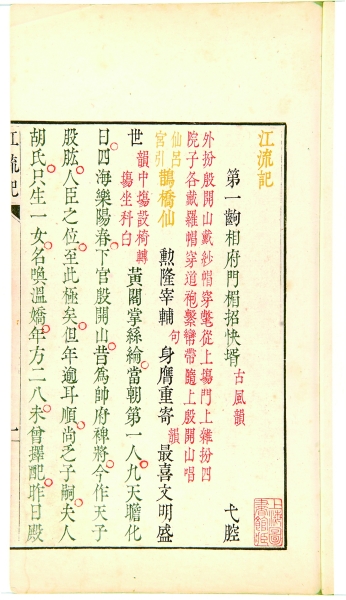 江流記
第一齣相府門楣招快壻 古風韻 弋腔
外扮殷開山戴紗帽穿氅從上塲門上雜扮四
院子各戴羅帽穿道袍繫鸞帶隨上殷開山唱
仙呂宮引 鵲橋仙 勲隆宰輔 句 身膺重寄 韻 最喜文明盛
世 韻 中塲設椅轉塲坐科白 黃閣掌絲綸當朝第一人九天瞻化
日四海樂陽春下官殷開山昔為帥府裨將今作天子
股肱人臣之位至此極矣但年逾耳順尚乏子嗣夫人
胡氏只生一女名喚溫嬌年方二八未曾擇配昨日殿
江流記
一
上海圖書館藏